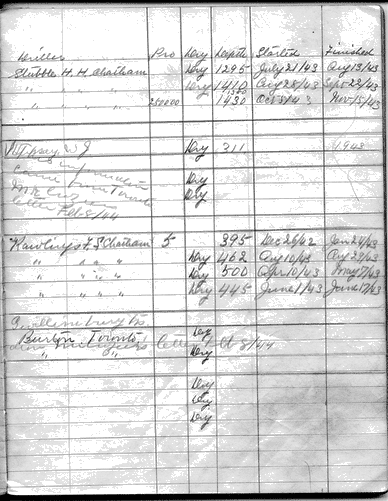 Driller Pro Dry Depth Started Finished
Stubble H. H. Chatham Dry 1295 July 21/43 Aug 13/43
" " " Dry 1410 Aug 28/43 Sept 23/43
" " " 250000 1430 Oct 5/43 Nov 15/43
W J Dry 211 1943
information
came from Toronto Dry
Dry
letter Feb 8/44
Rawlings F. S Chatham 5 395 Dec 26/42 Jan 24/43
" " " Dry 462 Aug 10/43 Aug 27/43
" " " Dry 500 Apr 10/43 May 7/43
" " " Dry 445 June 1/43 June 17/43
Dry
Burton Toronto letter 8/44
" " Dry
Dry
Dry
Dry